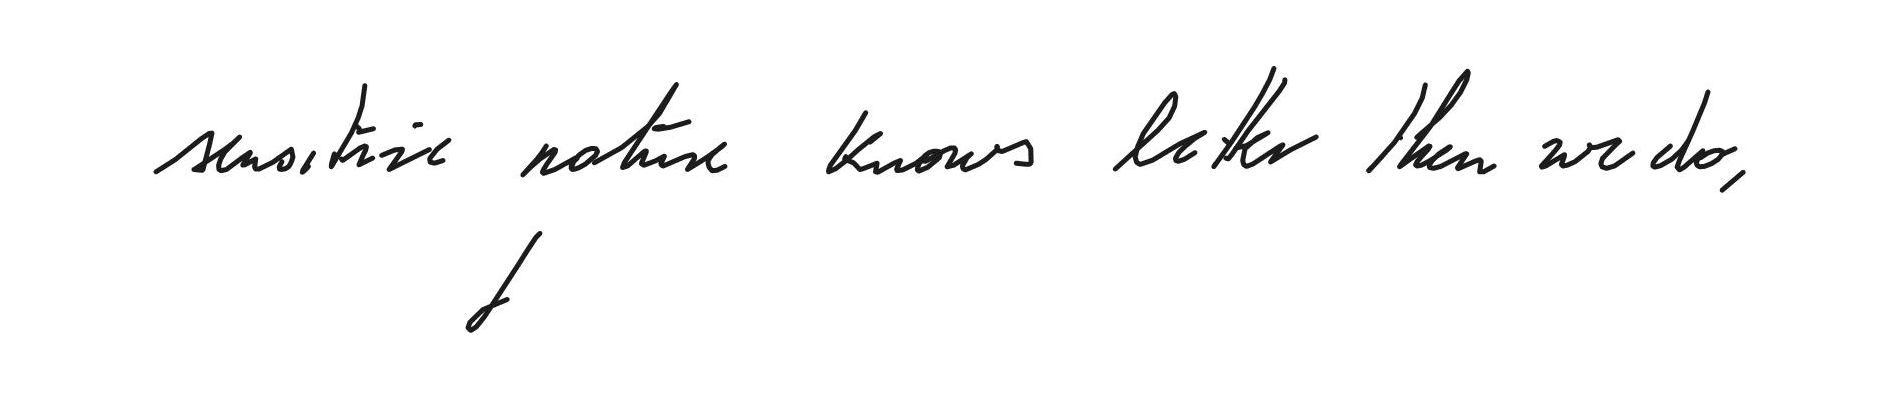 sensitive nature knows better then we do,